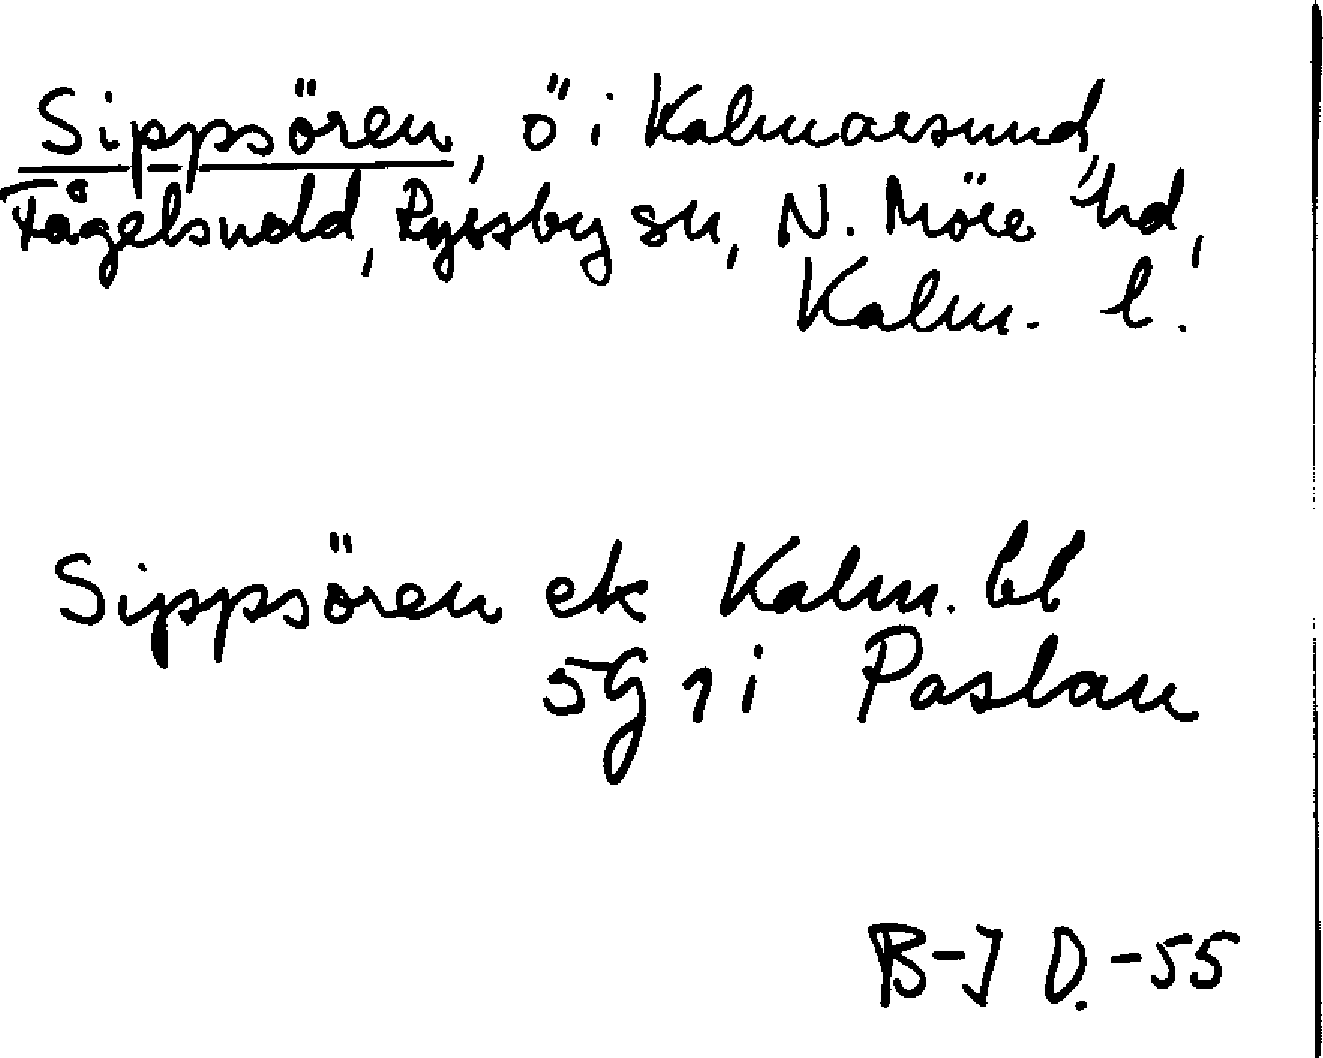 Sippsören, ö i Kalmarsund,
Fågelsudd, Ryssby sn, N. Möre hd,
Kalm. l.
Sippsören ek Kalm. bl
5g 1 i Paslau
B-J D.-55